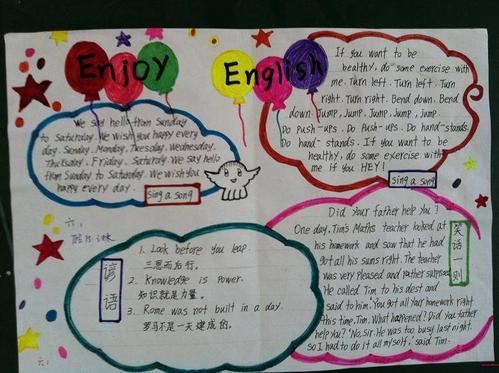 Enjoy English
We say hello from Sunday
to Saturday. We wish you happy every
day. Sunday. Monday. Tuesday. Wednesday.
Thursday. Friday. Saturday. We say hello
from Sunday to Saturday. We wish you
happy every day.
Sing a song
If you want to be
healthy, do some exercise with
me. Turn left. Turn left. Turn
right. Turn right. Bend down. Bend
down. Jump, Jump, Jump, Jump, Jump.
Do push-ups. Do push-ups. Do hand-stands.
Do hand-stands. If you want to be
healthy, do some exercise with
me if you HEY!
Sing a song
六、
谚语
1. Look before you leap.
三思而后行。
2. Knowledge is power.
知识就是力量。
3. Rome was not built in a day.
罗马不是一天建成的。
六、
笑话一则
Did your father help you?
One day, Tim's Maths teacher looked at
his homework and saw that he had
got all his sums right. The teacher
was very pleased and rather surprised.
He called Tim to his dest and
said to him. 'You got all your homework right
this time, Tim. What happened? Did your father
help you?' 'No, Sir. He was too busy last night,
so I had to do it all myself,' said Tim.